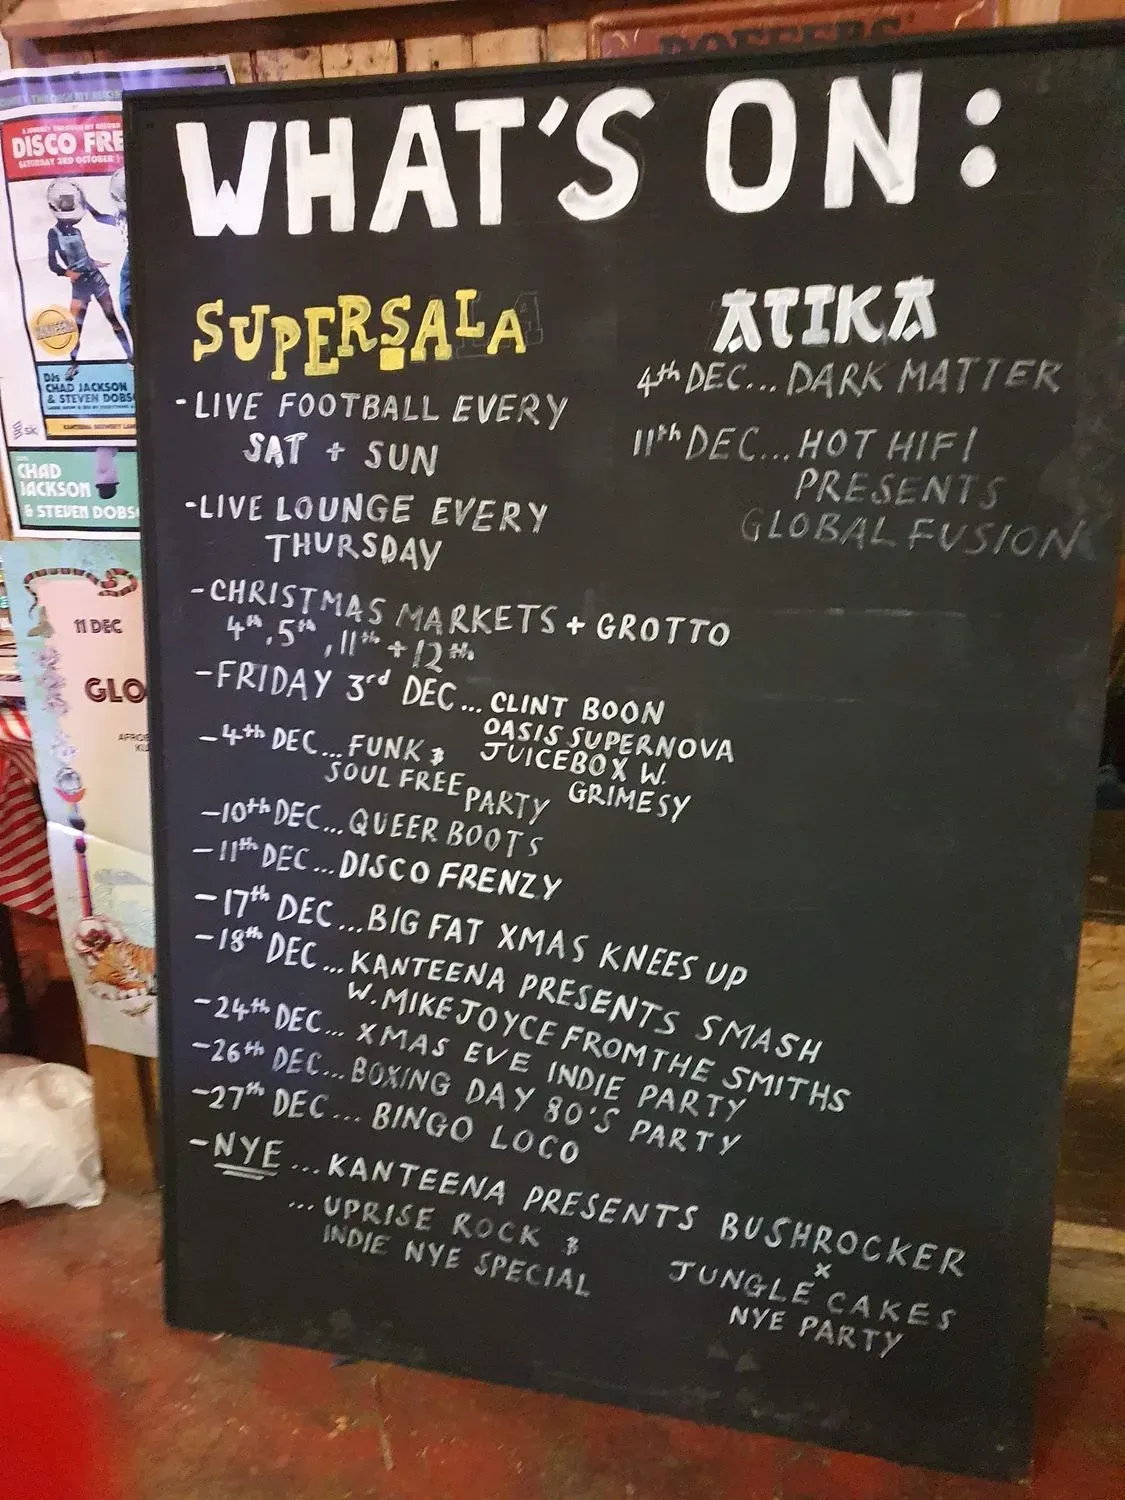 WHAT'S ON:
SUPERSALA
-LIVE FOOTBALL EVERY
SAT + SUN
-LIVE LOUNGE EVERY
THURSDAY
-CHRISTMAS MARKETS + GROTTO
4th, 5th, 11th + 12th.
-FRIDAY 3rd DEC... CLINT BOON
OASIS SUPERNOVA
JUICEBOX W.
GRIMESY
-4th DEC... FUNK &
SOUL FREE PARTY
-10th DEC... QUEER BOOTS
-11th DEC... DISCO FRENZY
-17th DEC... BIG FAT XMAS KNEES UP
-18th DEC... KANTEENA PRESENTS SMASH
W. MIKE JOYCE FROM THE SMITHS
-24th DEC... XMAS EVE INDIE PARTY
-26th DEC... BOXING DAY 80'S PARTY
-27th DEC... BINGO LOCO
-NYE... KANTEENA PRESENTS BUSHROCKER
X
JUNGLE CAKES
NYE PARTY
... UPRISE ROCK &
INDIE NYE SPECIAL
ATIKA
4th DEC... DARK MATTER
11th DEC... HOT HIFI
PRESENTS
GLOBAL FUSION
DISCO FRE
SATURDAY 3RD OCTOBER
DJs
CHAD JACKSON
& STEVEN DOBS
sk
CHAD
JACKSON
& STEVEN DOBS
11 DEC
GLO